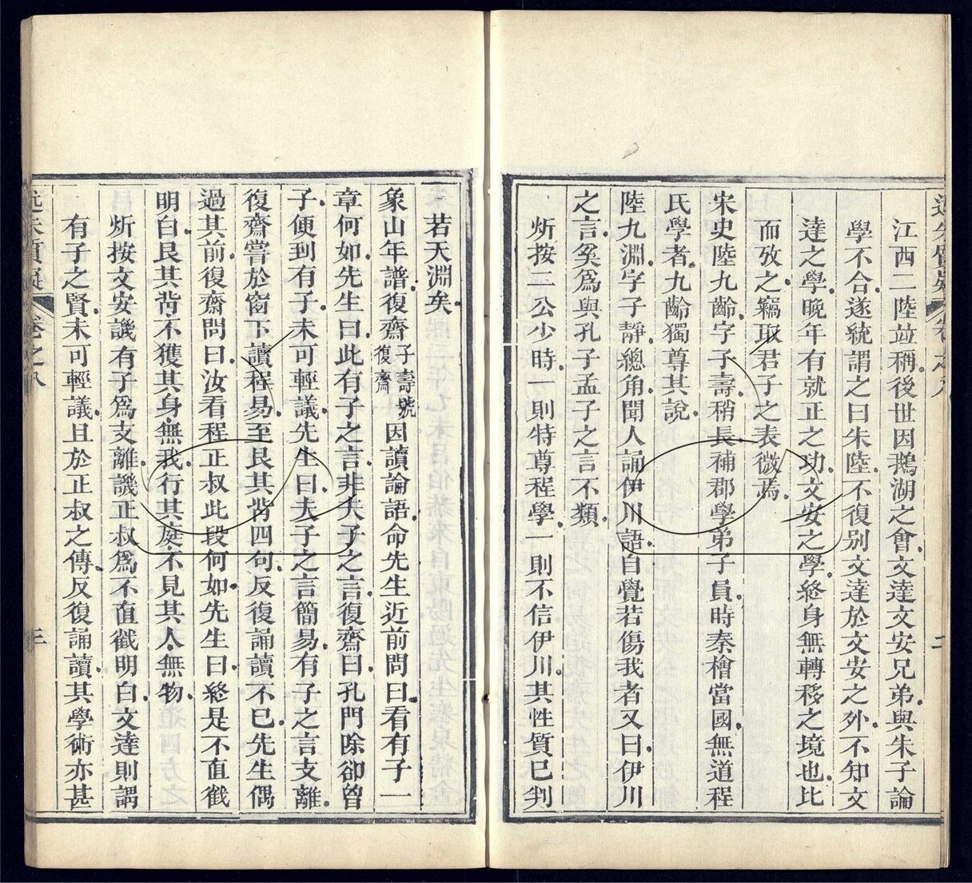 江西二陸竝稱後世因鵞湖之會文達文安兄弟與朱子論
學不合遂統謂之曰朱陸不復別文達於文安之外不知文
達之學晚年有就正之功文安之學終身無轉移之境也比
而攷之竊取君子之表微焉
宋史陸九齡字子壽稍長補郡學弟子員時秦檜當國無道程
氏學者九齡獨尊其說
陸九淵字子靜總角聞人誦伊川語自覺若傷我者又曰伊川
之言奚爲與孔子孟子之言不類
炘按二公少時一則特尊程學一則不信伊川其性質已判
若天淵矣
象山年譜復齋子壽號復齋因讀論語命先生近前問曰看有子一
章何如先生曰此有子之言非夫子之言復齋曰孔門除卻曾
子便到有子未可輕議先生曰夫子之言簡易有子之言支離
復齋嘗於窗下讀程易至艮其背四句反復誦讀不已先生偶
過其前復齋問曰汝看程正叔此段何如先生曰終是不直截
明白艮其背不獲其身無我行其庭不見其人無物
炘按文安譏有子爲支離譏正叔爲不直截明白文達則謂
有子之賢未可輕議且於正叔之傳反復誦讀其學術亦甚
卷之八
三